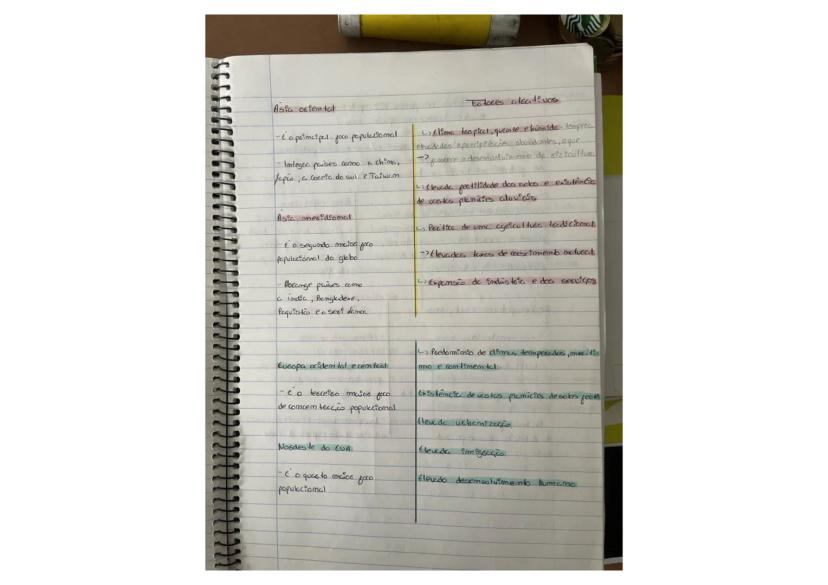 Ásia oriental
- É o principal foco populacional
- Integra países como a China,
Japão, a Coreia do Sul e Taiwan
Ásia meridional
- É o segundo maior foco
populacional do globo
- Abrange países como
a índia, Bangladexe,
Paquistão e o
Europa ocidental e central
- é o terceiro maior foco
de concentração populacional
Nordeste do EUA
- É o quarto maior foco
populacional
Fatores atrativos
↳ Clima tropical, quente e húmido
precipitações abundantes, o que
→ o desenvolvimento da rizicultura
↳ Elevada fertilidade dos solos e existência
de vastas planícies aluviais
↳ Prática de uma agricultura tradicional
→ Elevadas taxas de crescimento natural
↳ Expansão da indústria e dos serviços
↳ Predomínio de climas temperados, maríti
mo e continental
Existência de vastas planícies de solos férteis
Elevada urbanização
Elevada imigração
Elevado desenvolvimento humano